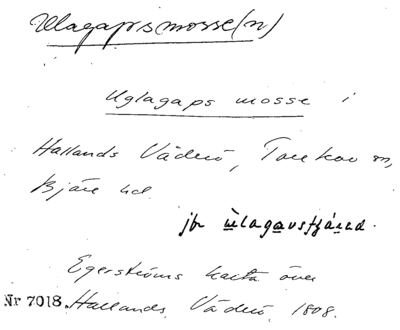 Ulagapsmosse(n)
Uglagaps mosse i
Hallands Väderö, Torekov sn,
Bjäre hd.
jfr
Egerströms karta över
Nr 7018. Hallands Väderö 1808.